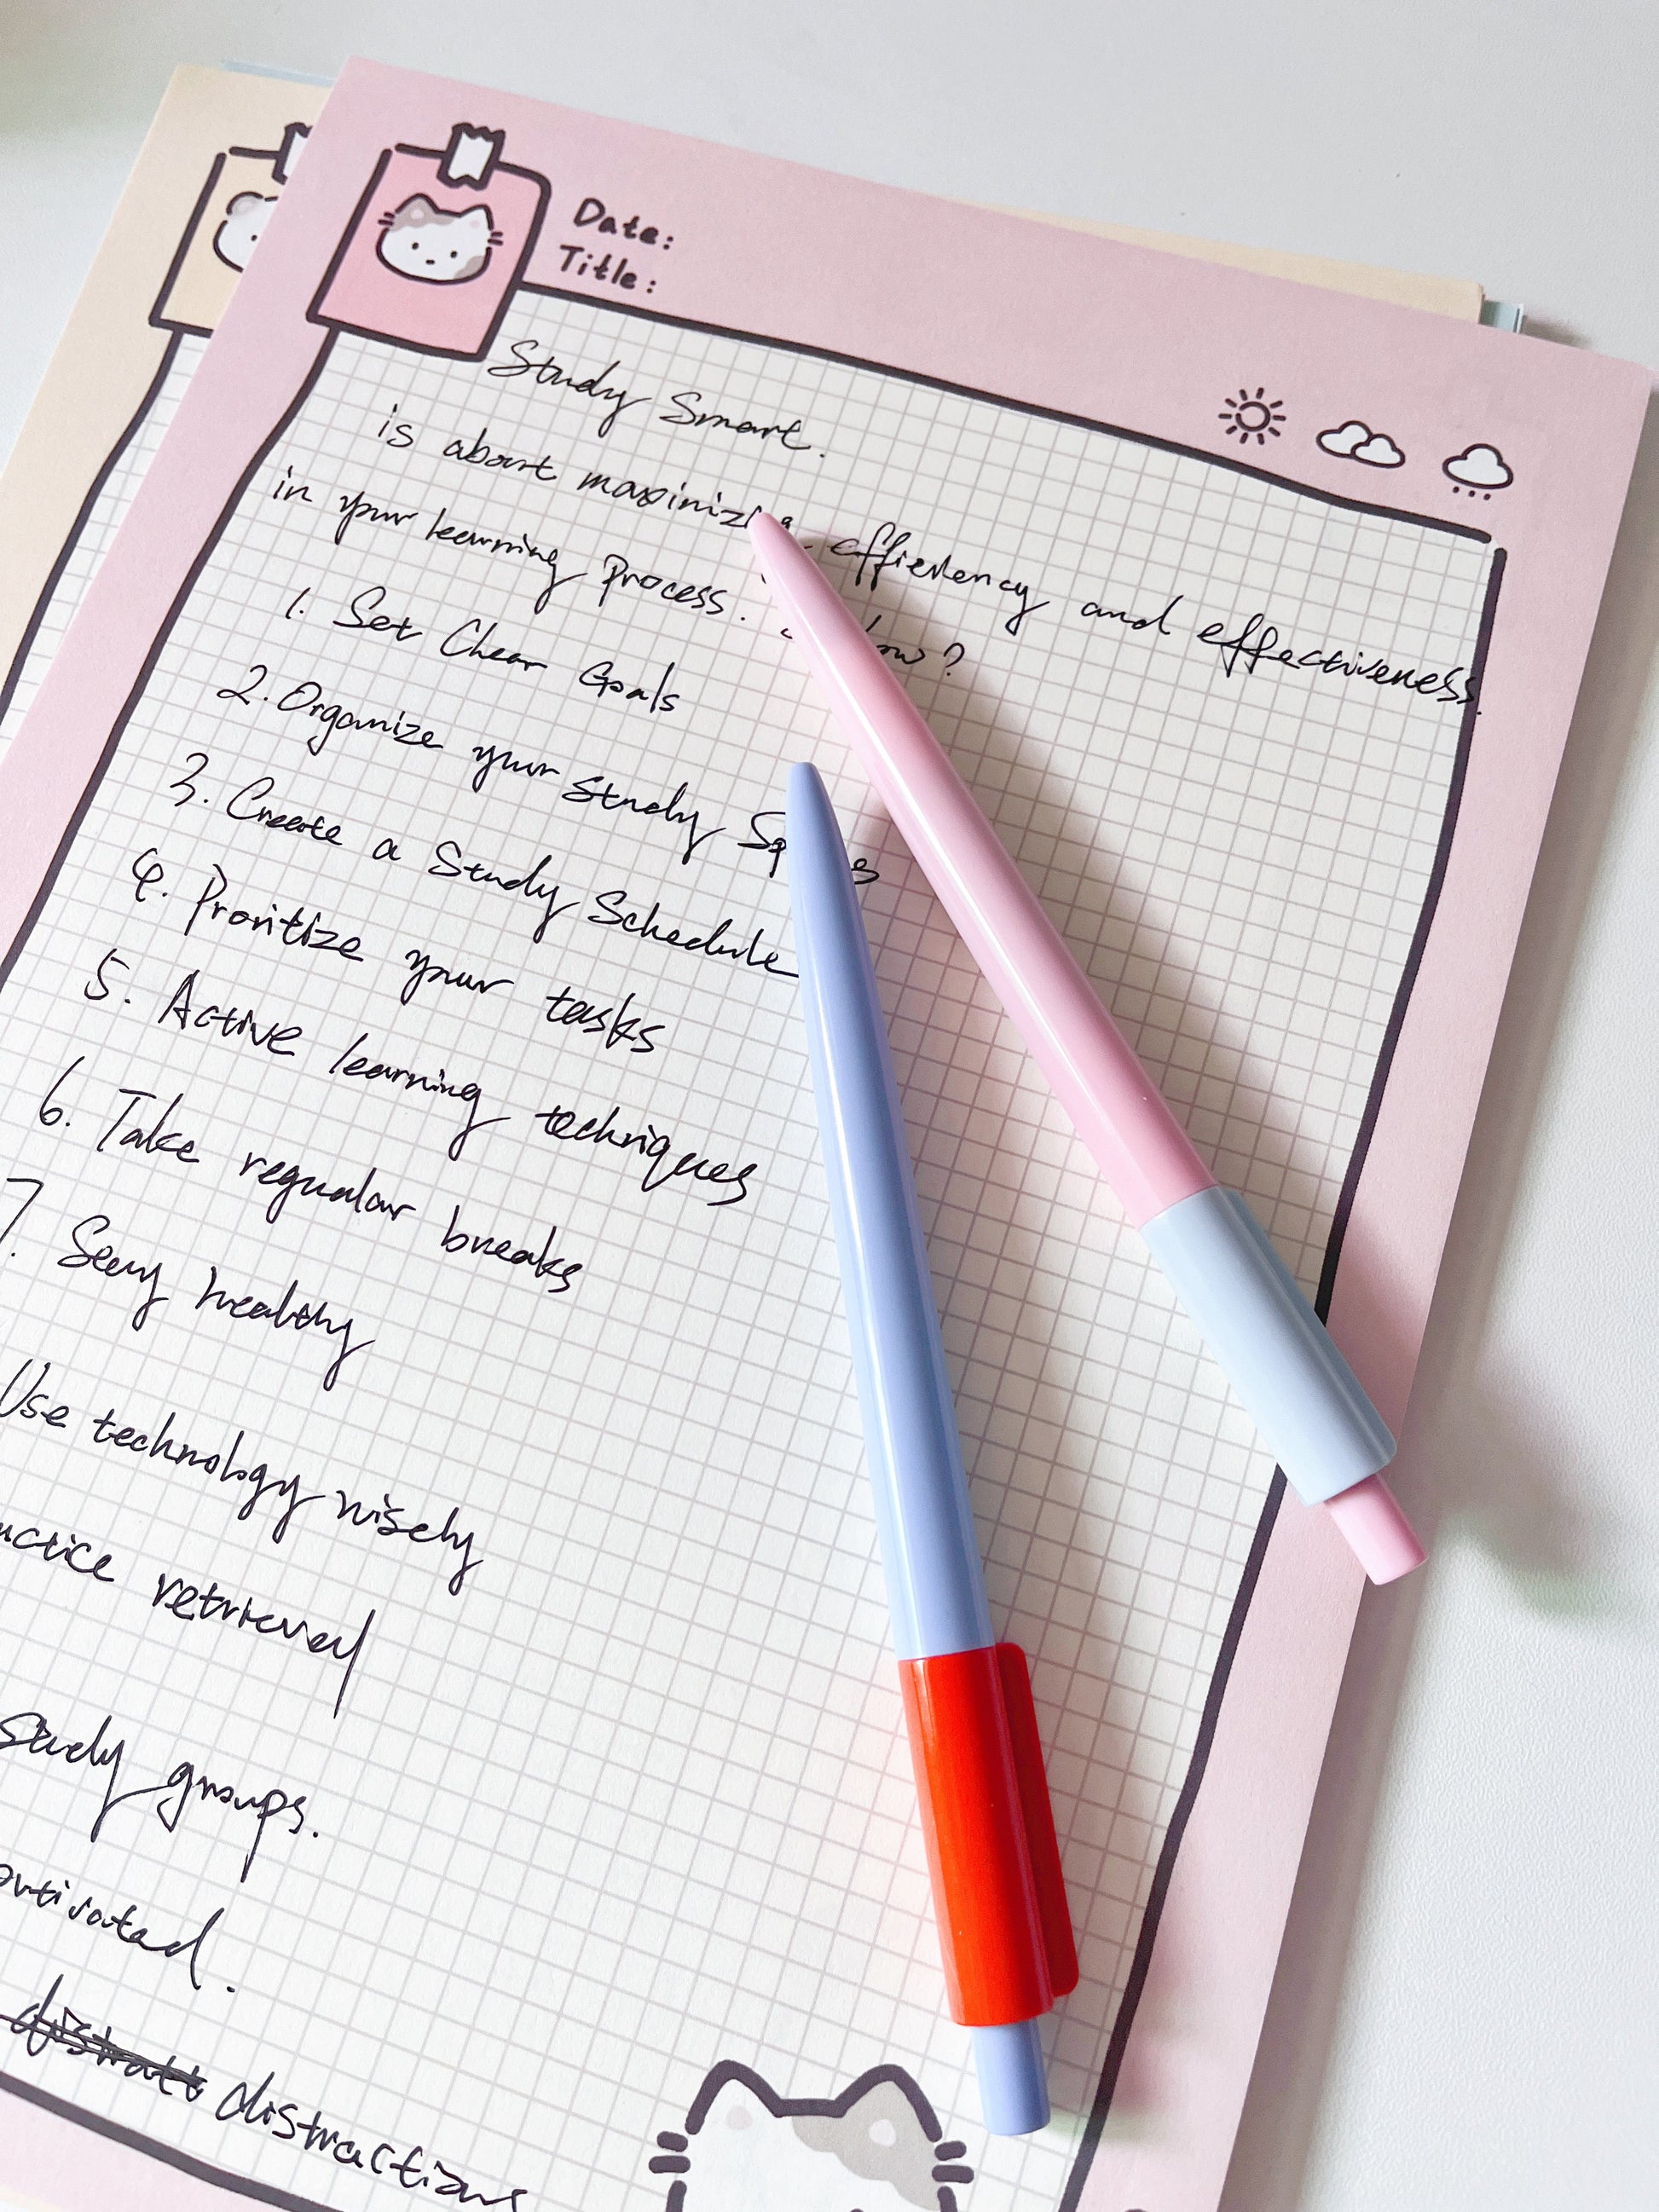 Date:
Title:
Study Smart.
is about maxinizing effiency and effectiveness.
in your learning process. how?
1. Set Clear Goals
2. Organize your study
3. Create a Study Schedule
4. Proritize your tasks
5. Active learning techniques
6. Take regualar breaks
7. Seay healthy
Use technology wisely
retrieval
study groups.
distratt distractions